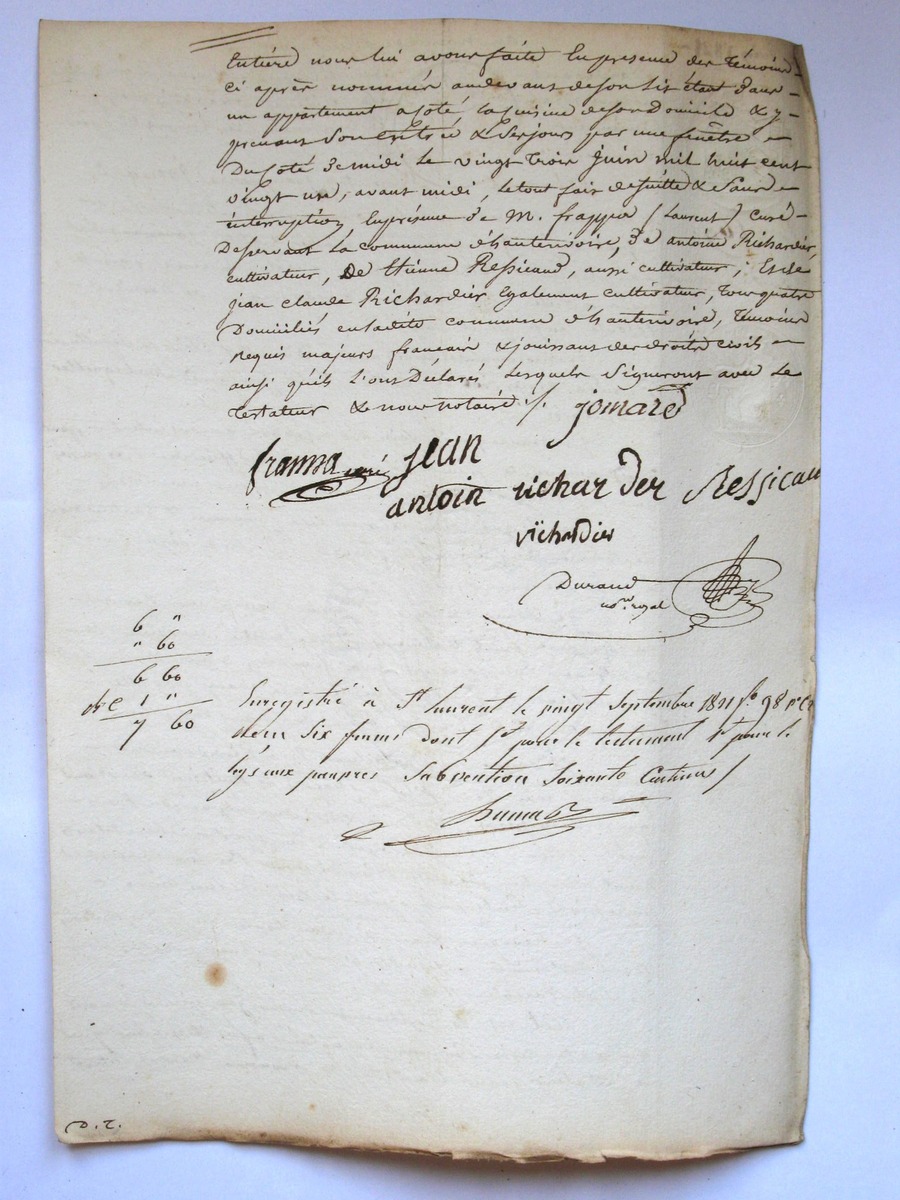 Entière nous lui avons faite En presence des témoins
ci après nommés audevant de son lit étant dans
un appartement a coté la cuisine de son Domicile & y
prenant Son Entrée & Ses jours par une fenêtre
Du Coté de midi Le vingt Trois juin mil huit cent
vingt un, avant midi, Le tout fait de suitte & Sans
interruption En présence de M. frappa (Laurent) curé
Desservant La commune d'hauterivoire, de antoine Richardier,
cultivateur, De Etienne Ressicaud, aussi cultivateur, Et de
jean claude Richardier Egalement cultivateur, Tous quatre
Domiciliés en ladite commune d'hauterivoire, Témoins
Requis majeurs francais & jouissant des droits civils
ainsi qu'ils L'ont Déclaré Lesquels Signeront avec Le
Testateur & nous notaire ./.
jomard
frappa curé jean
antoin richarder Ressicau
richardier
Durand
not. royal
6 "
" 60
6 60
1 "
7 60
Enregistré à St laurent le vingt Septembre 1821 fo 98
Six francs dont 5f pour le testament 1f pour le
legs aux pauvres Subvention Soixante Centimes /
D. T.